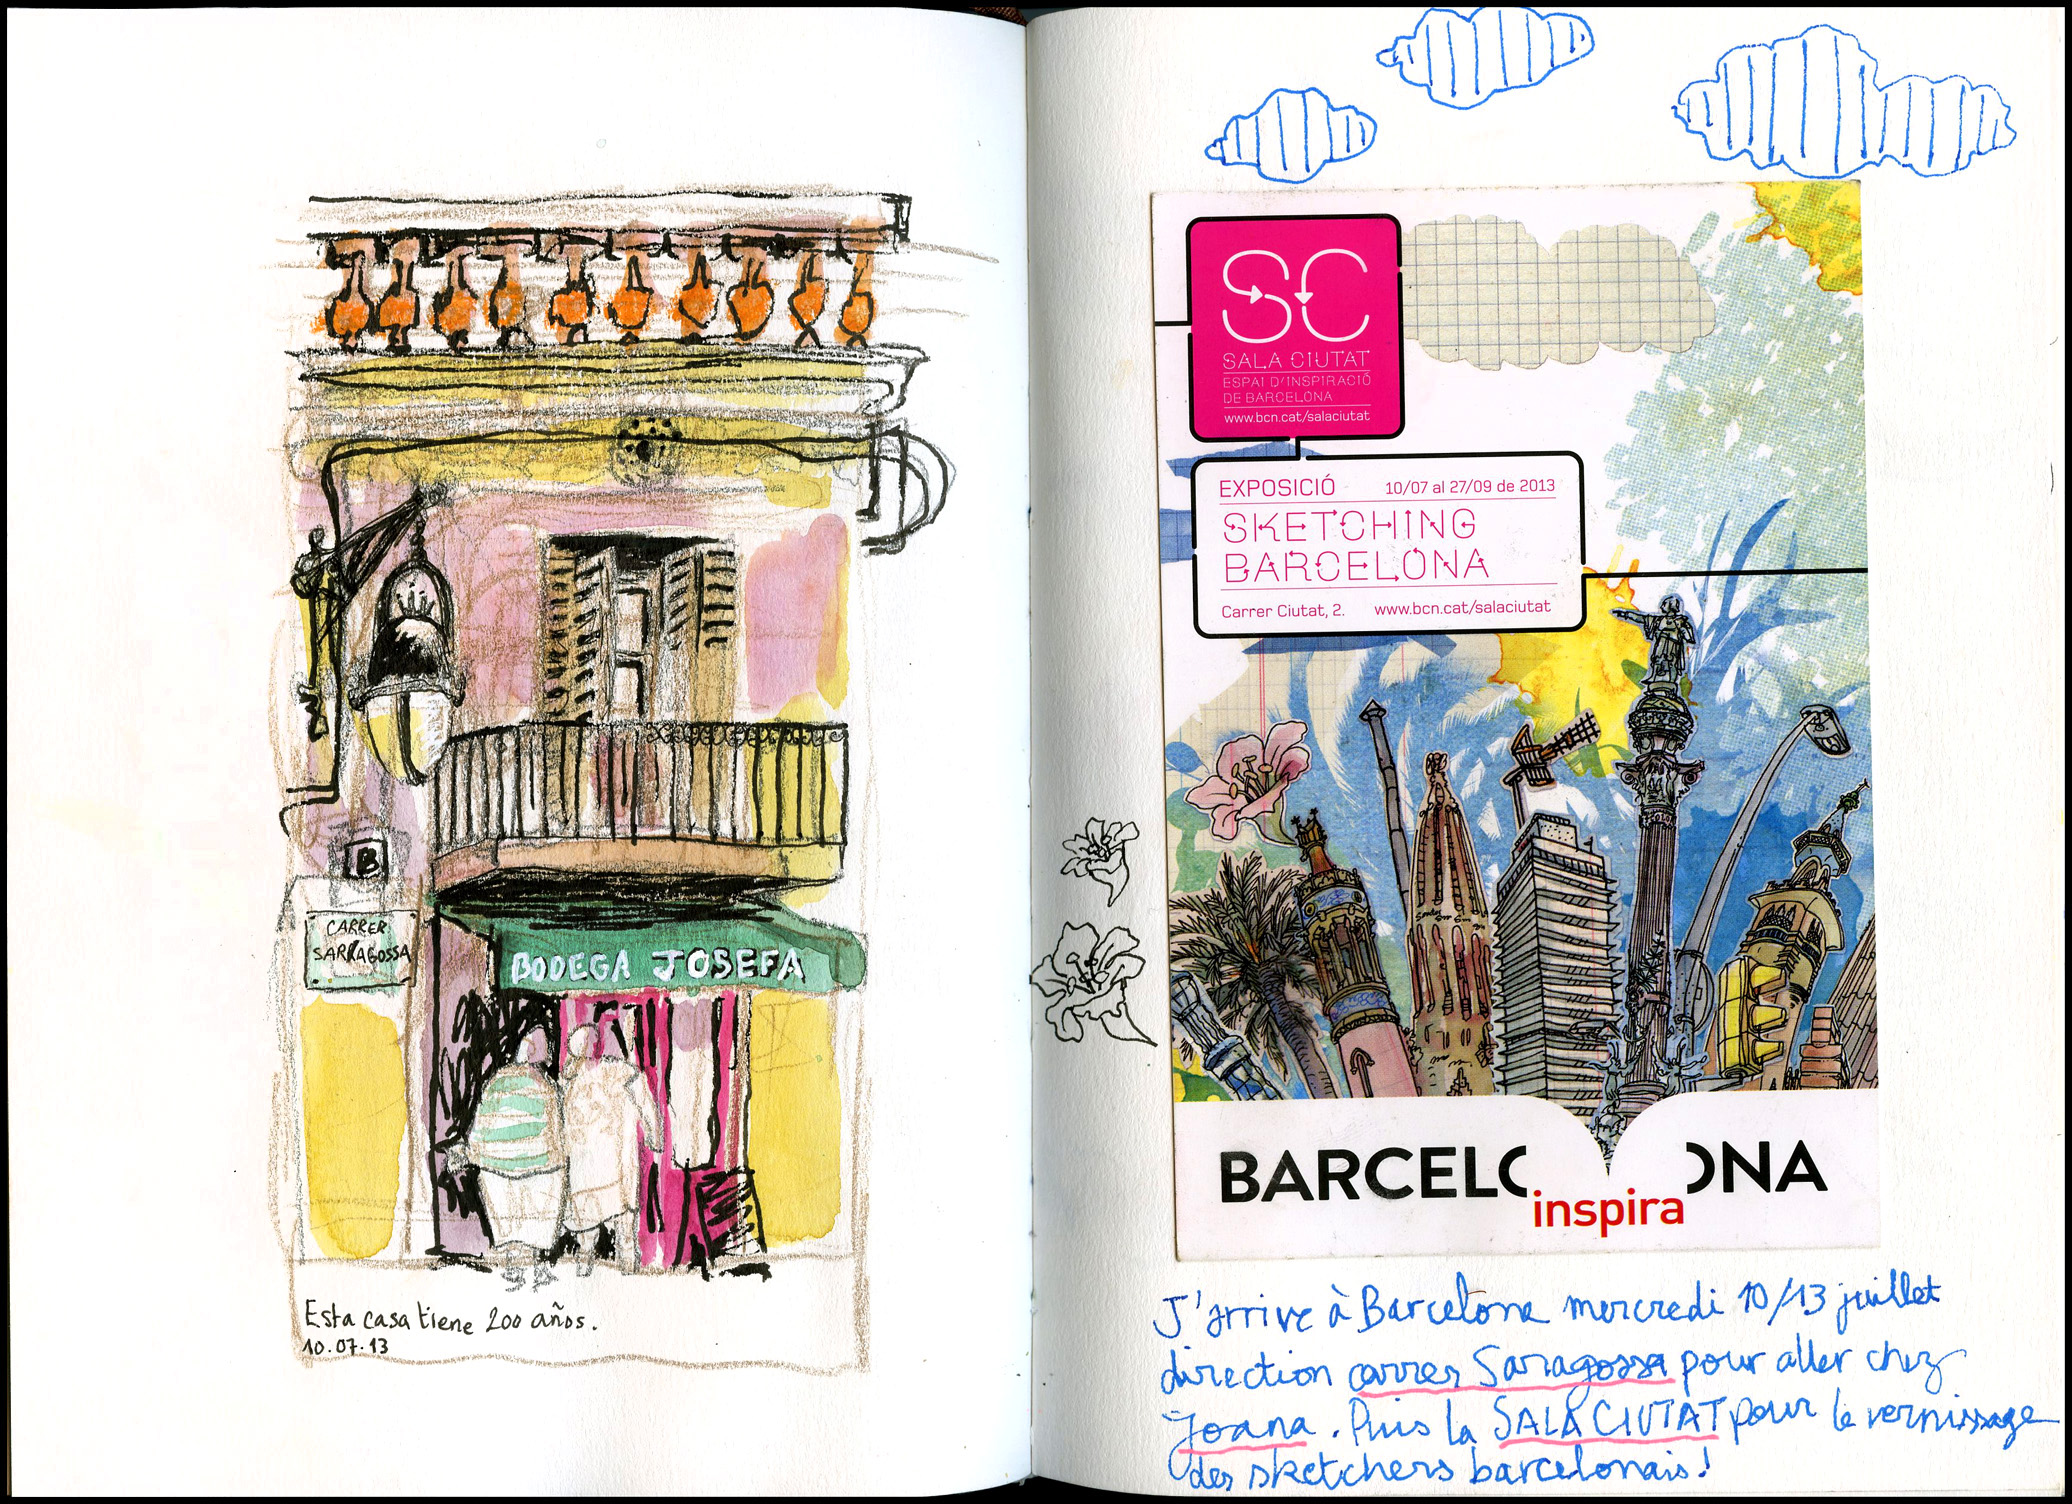 B
CARRER
SARRAGOSSA
BODEGA JOSEFA
Esta casa tiene 200 años.
10.07.13
SC
SALA CIUTAT
ESPAI D'INSPIRACIÓ
DE BARCELONA
www.bcn.cat/salaciutat
EXPOSICIÓ 10/07 al 27/09 de 2013
SKETCHING
BARCELONA
Carrer Ciutat, 2. www.bcn.cat/salaciutat
BARCELONA
inspira
J'arrive à Barcelona mercredi 10/13 juillet
direction carrer Saragossa pour aller chez
Joana. Puis la SALA CIUTAT pour le vernissage
des sketchers barcelonais!